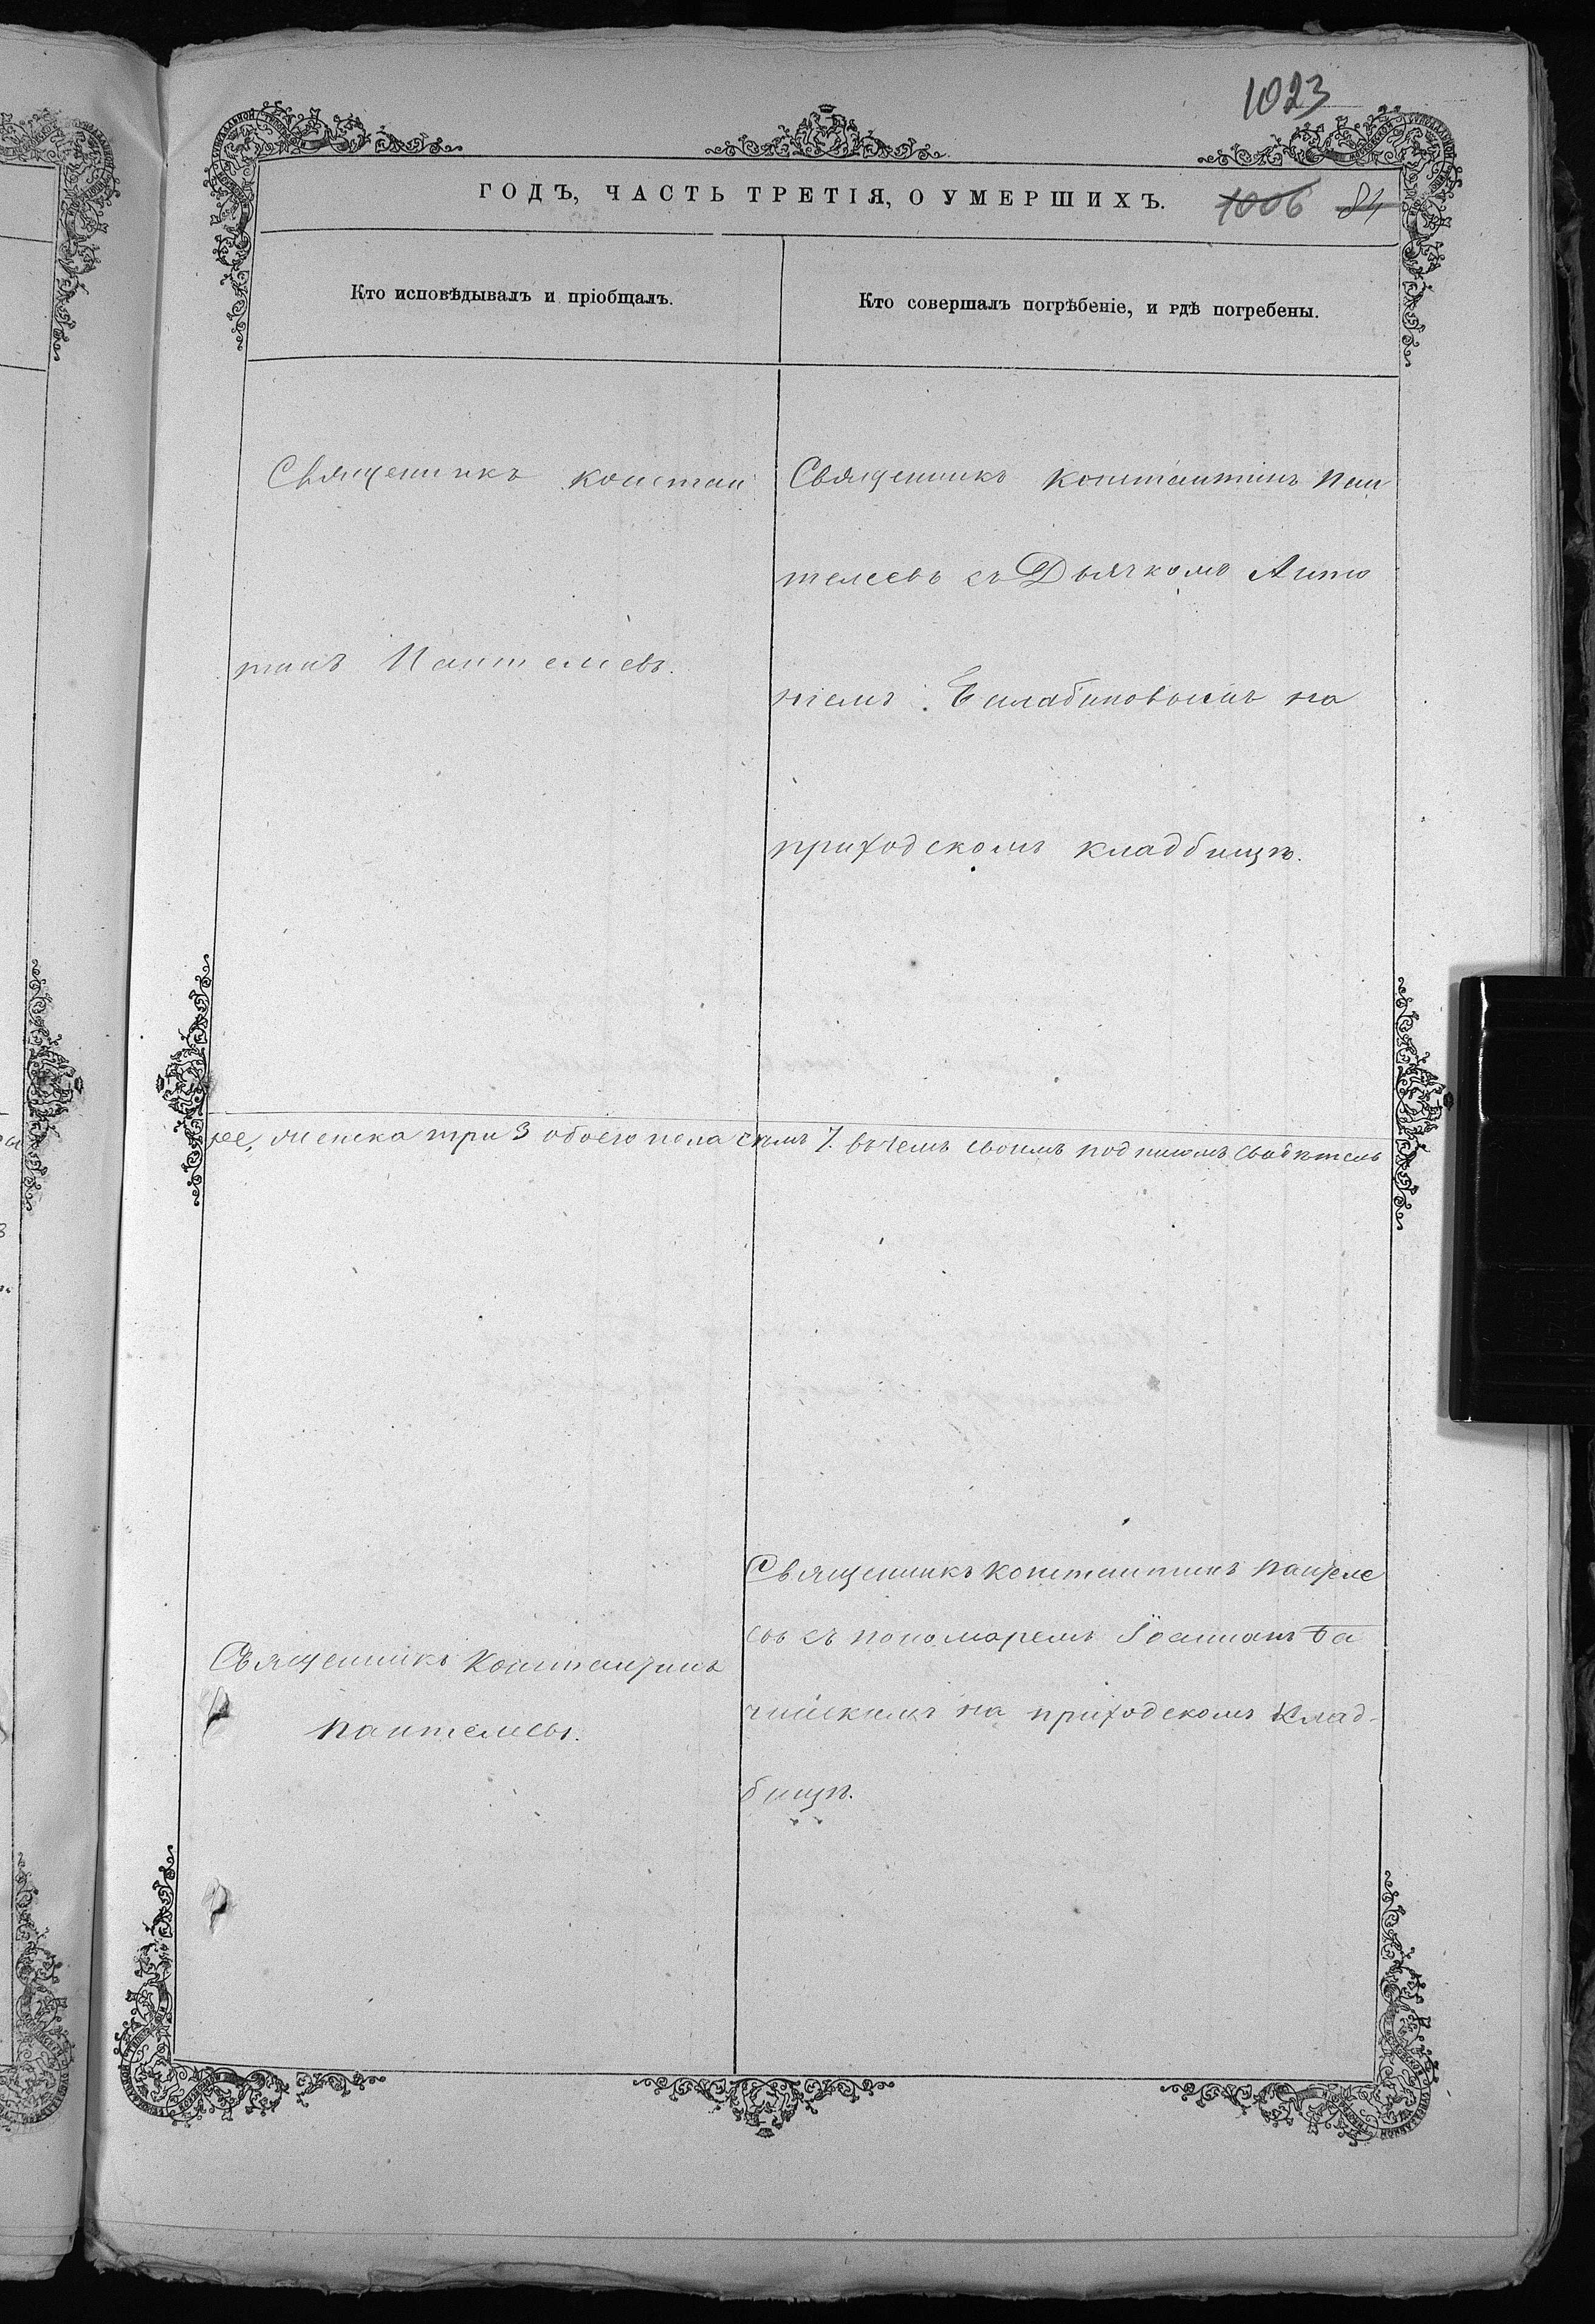 1023
ГОДЪ, ЧАСТЬ ТРЕТІЯ, О УМЕРШИХЪ. 1006 84
Кто исповѣдывалъ и пріобщалъ.
Кто совершалъ погрѣбеніе, и гдѣ погребены.
Священникъ констан
тинъ Пантелеевъ.
Священникъ Константинъ Пан
телеевъ съ Дьячкомъ Анто
ніемъ на
приходскомъ кладбищѣ.
женска три 3 обоего пола семь 7. въ чемъ своимъ подписомъ свидѣтель
Священникъ Константинъ
Пантелеевъ.
Священникъ Константинъ Пантеле
евъ съ пономаремъ Іоанномъ Ба
чинскимъ на приходскомъ клад-
бищѣ.